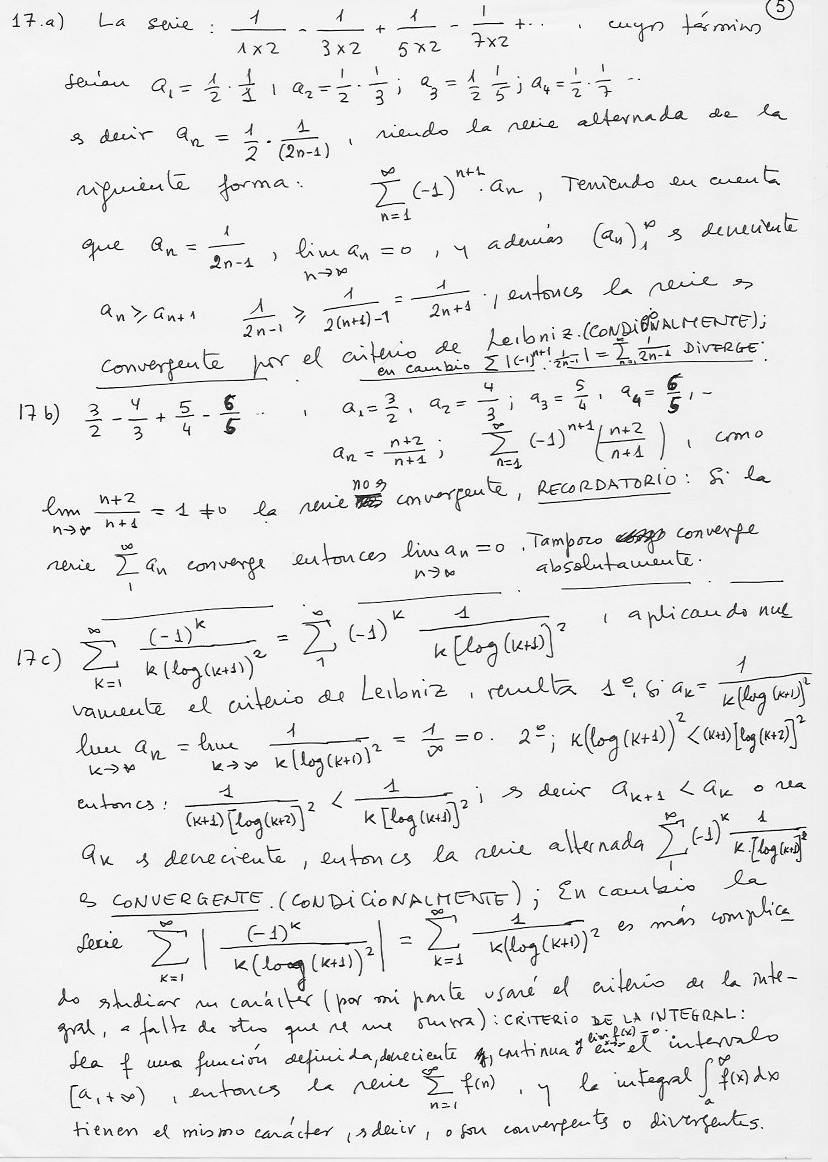 (5)
17.a) La serie : 1/(1x2) - 1/(3x2) + 1/(5x2) - 1/(7x2) + ... . cuyos términos
serían a₁ = 1/2 · 1/1 , a₂ = 1/2 · 1/3 ; a₃ = 1/2 · 1/5 ; a₄ = 1/2 · 1/7 ...
es decir aₙ = 1/2 · 1/(2n-1) , siendo la serie alternada de la
siguiente forma: ∑_{n=1}^{∞} (-1)^{n+1} · aₙ , Teniendo en cuenta
que aₙ = 1/(2n-1) , lim_{n→∞} aₙ = 0 , y además (aₙ)₁^∞ es decreciente
aₙ ≥ aₙ₊₁ 1/(2n-1) ≥ 1/(2(n+1)-1) = 1/(2n+1) ; entonces la serie es
convergente por el criterio de Leibniz. (CONDICIONALMENTE);
en cambio ∑ |(-1)^{n+1} · 1/(2n-1)| = ∑_{n=1}^{∞} 1/(2n-1) DIVERGE.
17 b) 3/2 - 4/3 + 5/4 - 6/5 ... , a₁ = 3/2 , a₂ = 4/3 ; a₃ = 5/4 , a₄ = 6/5 , ...
aₙ = (n+2)/(n+1) ; ∑_{n=1}^{∞} (-1)^{n+1} ((n+2)/(n+1)) , como
lim_{n→∞} (n+2)/(n+1) = 1 ≠ 0 la serie no es convergente, RECORDATORIO : Si la
serie ∑₁^∞ aₙ converge entonces lim_{n→∞} aₙ = 0 . Tampoco converge
absolutamente.
17c) ∑_{k=1}^{∞} (-1)^k/(k(log(k+1))²) = ∑₁^∞ (-1)^k 1/(k[log(k+1)]²) , aplicando nue
vamente el criterio de Leibniz , resulta 1º. Si aₖ = 1/(k(log(k+1))²
lim_{k→∞} aₖ = lim_{k→∞} 1/(k[log(k+1)]²) = 1/∞ = 0. 2º; k(log(k+1))² < (k+1)[log(k+2)]²
entonces : 1/((k+1)[log(k+2)]²) < 1/(k[log(k+1)]²) ; es decir aₖ₊₁ < aₖ o sea
aₖ es decreciente , entonces la serie alternada ∑₁^∞ (-1)^k 1/(k.[log(k+1)]²
es CONVERGENTE . (CONDICIONALMENTE) ; En cambio la
serie ∑_{k=1}^{∞} |(-1)^k/(k(log(k+1))²)| = ∑_{k=1}^{∞} 1/(k(log(k+1))²) es más complica
do estudiar su carácter (por mi parte usaré el criterio de la inte-
gral, a falta de otro que se me ocurra) : CRITERIO DE LA INTEGRAL :
Sea f una función definida, decreciente y, continua y lim f(x) = 0 en el intervalo
[a, +∞) , entonces la serie ∑_{n=1}^{∞} f(n) , y la integral ∫ₐ^∞ f(x) dx
tienen el mismo carácter , es decir , o son convergentes o divergentes.